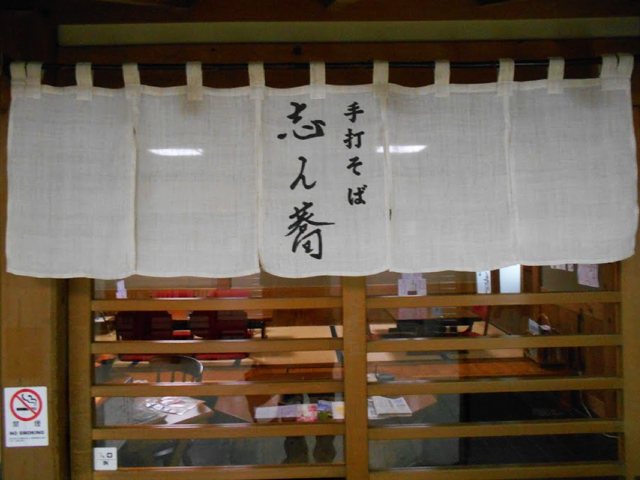 手打そば
志ん蕎
禁煙
NO SMOKING